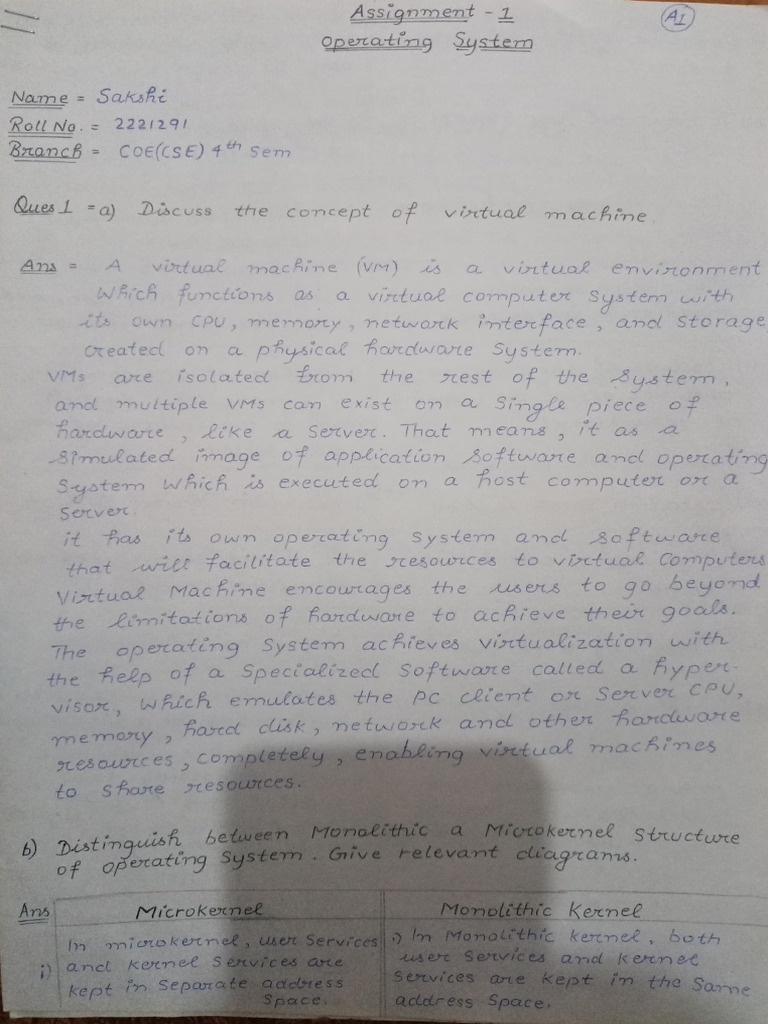 Assignment - 1
A1
Operating System
Name = Sakshi
Roll No. = 2221291
Branch = COE(CSE) 4th Sem
Ques 1 = a) Discuss the concept of virtual machine.
Ans = A virtual machine (VM) is a virtual environment
which functions as a virtual computer system with
its own CPU, memory, network interface, and storage,
created on a physical hardware system.
VMs are isolated from the rest of the system,
and multiple VMs can exist on a single piece of
hardware, like a server. That means, it as a
simulated image of application software and operating
system which is executed on a host computer or a
server.
it has its own operating system and software
that will facilitate the resources to virtual computers
Virtual Machine encourages the users to go beyond
the limitations of hardware to achieve their goals.
The operating system achieves virtualization with
the help of a specialized software called a hyper-
visor, which emulates the PC client or server CPU,
memory, hard disk, network and other hardware
resources, completely, enabling virtual machines
to share resources.
b) Distinguish between Monolithic a Microkernel structure
of operating system. Give relevant diagrams.
Ans Microkernel Monolithic Kernel
i) In microkernel, user services
and kernel services are
kept in separate address
space.
i) In Monolithic kernel, both
user services and kernel
services are kept in the same
address space.